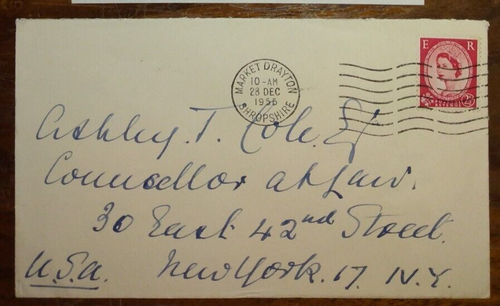 MARKET DRAYTON
10-AM
28 DEC
1956
SHROPSHIRE
E R
Ashley. T. Cole. Esq
Councellor at Law.
30 East 42nd Street.
U.S.A. New York. 17. N.Y.